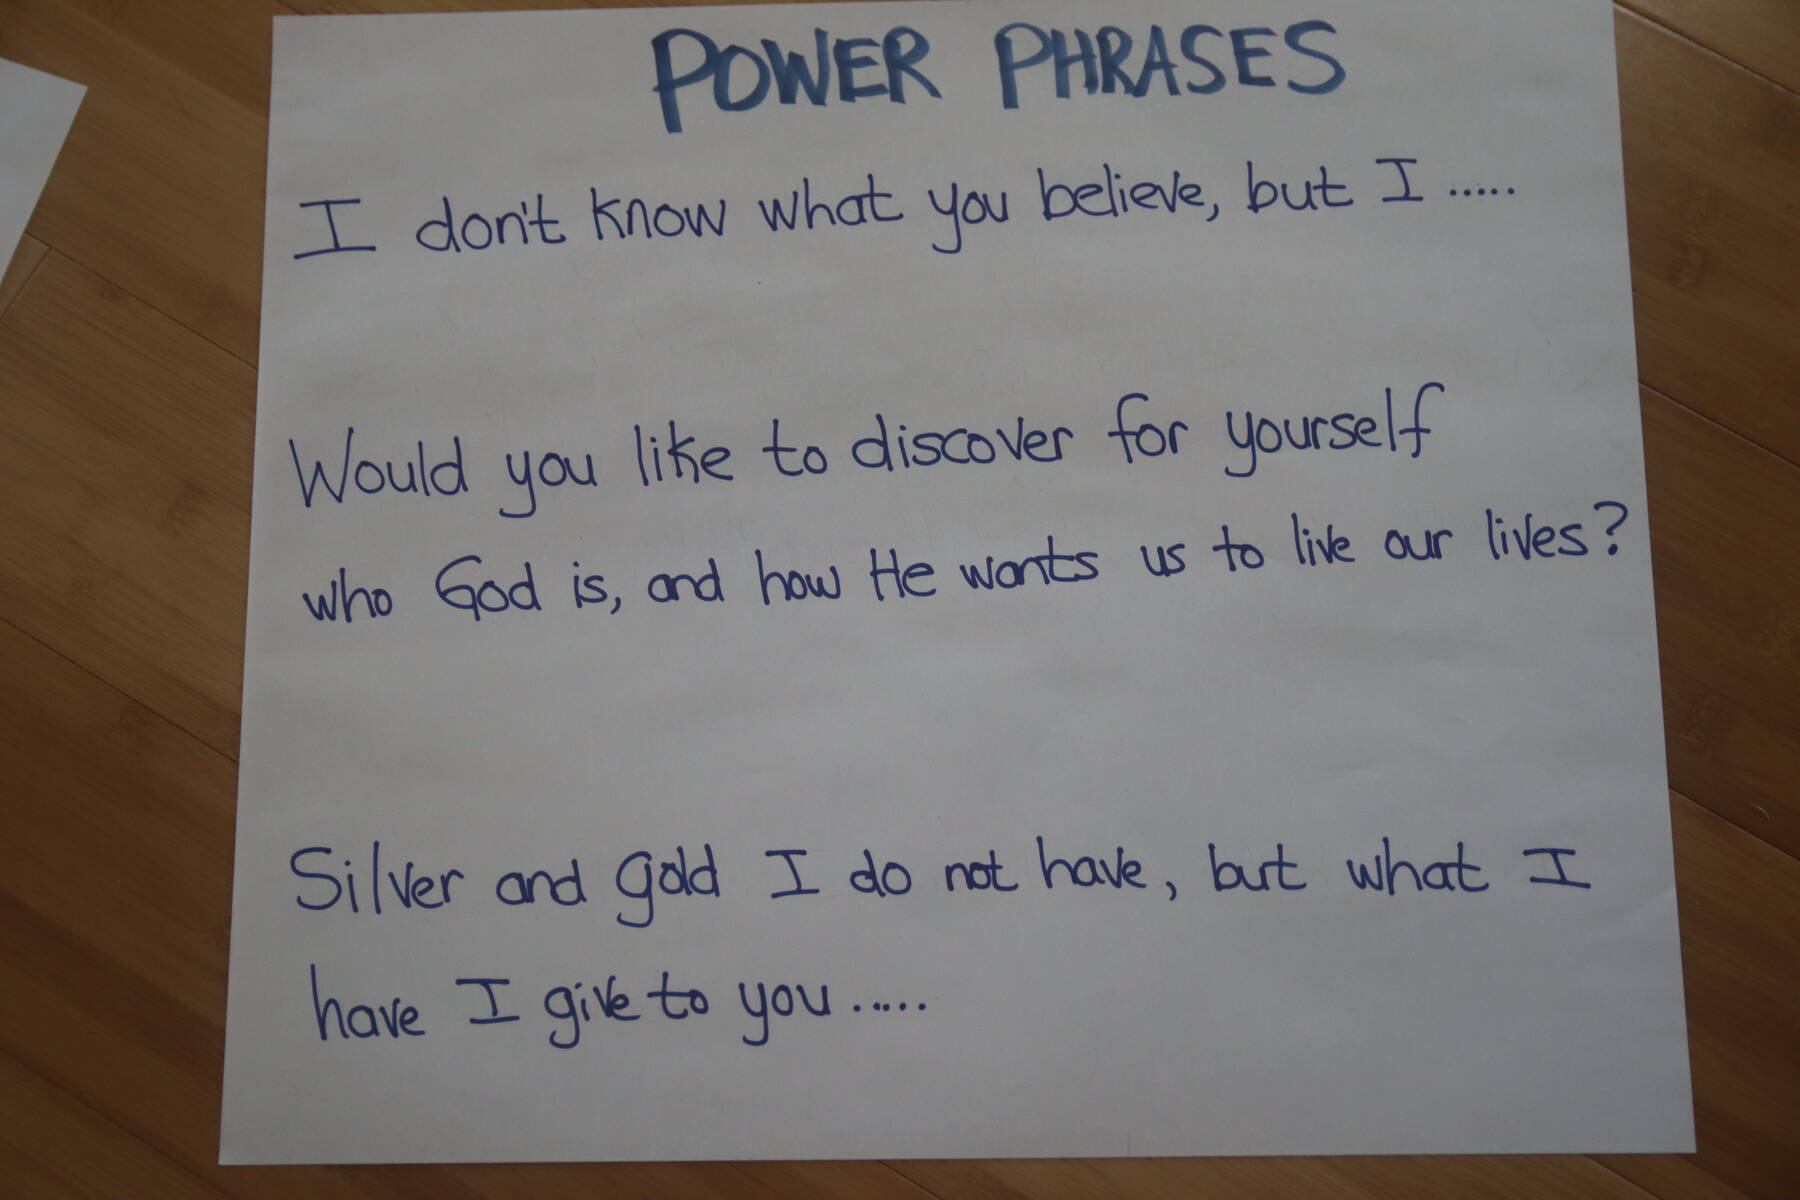 POWER PHRASES
I don't know what you believe, but I .....
Would you like to discover for yourself
who God is, and how He wants us to live our lives?
Silver and gold I do not have, but what I
have I give to you .....